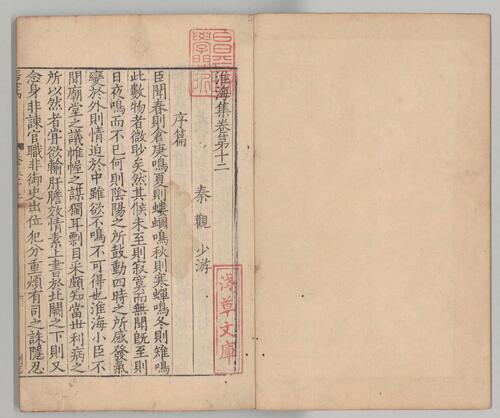 淮海集卷第十二
秦觀 少游
序篇
臣聞春則倉庚鳴夏則螻蟈鳴秋則寒蟬鳴冬則雉鳴
此數物者微眇矣然其候未至則寂寞而無聞旣至則
日夜鳴而不已何則陰陽之所鼓動四時之所感發氣
變於外則情迫於中雖欲不鳴不可得也淮海小臣不
聞廟堂之議帷幄之謀獨耳剽目采頗知當世利病之
所以然者甞欲輸肝膽效情素上書於北闕之下則又
念身非諫官職非御史出位犯分重煩有司之誅隱忍
淺草文庫